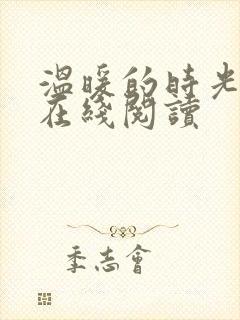 溫暖的時光
在綫閱讀
季志會